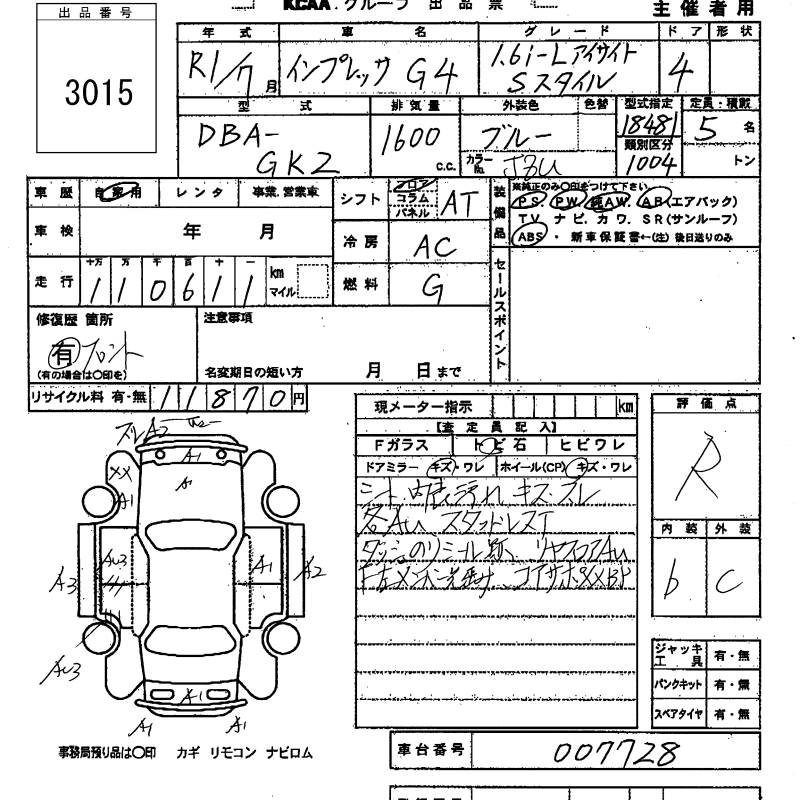 KCAA グループ 出品票
主催者用
出品番号
3015
年式 車名 グレード ドア 形状
R1/7月 インプレッサ G4 1.6i-L アイサイト Sスタイル 4
型式 排気量 外装色 色替 型式指定 定員・積載
DBA-GK2 1600 c.c. ブルー 18481 5名
カラーNo. 類別区分 1004 トン
車歴 自家用 レンタ 事業.営業車
シフト フロア コラム パネル AT
装備品
※純正のみ○印をつけて下さい
PS. PW. 純AW. AB(エアバック)
TV. ナビ. カワ. SR(サンルーフ)
ABS ・ 新車保証書←(注) 後日送りのみ
車検 年 月
冷房 AC
走行 十万 万 千 百 十 一
110611 km マイル
燃料 G
セールスポイント
修復歴 箇所
有 フロント
(有の場合は○印を)
注意事項
名変期日の短い方 月 日まで
リサイクル料 有・無 11870円
現メーター指示 km
【査定員記入】
Fガラス トビ石 ヒビワレ
ドアミラー キズ・ワレ ホイール(CP) キズ・ワレ
シート、内張 汚れ キズ スレ
各AU スタッドレス
評価点
R
内装 外装
b C
ジャッキ工具 有・無
パンクキット 有・無
スペアタイヤ 有・無
A2
A1
A1
XX
A1
AU3
A1
A3
A2
AU3
A1
A1
事務局預り品は○印 カギ リモコン ナビロム
車台番号 007728